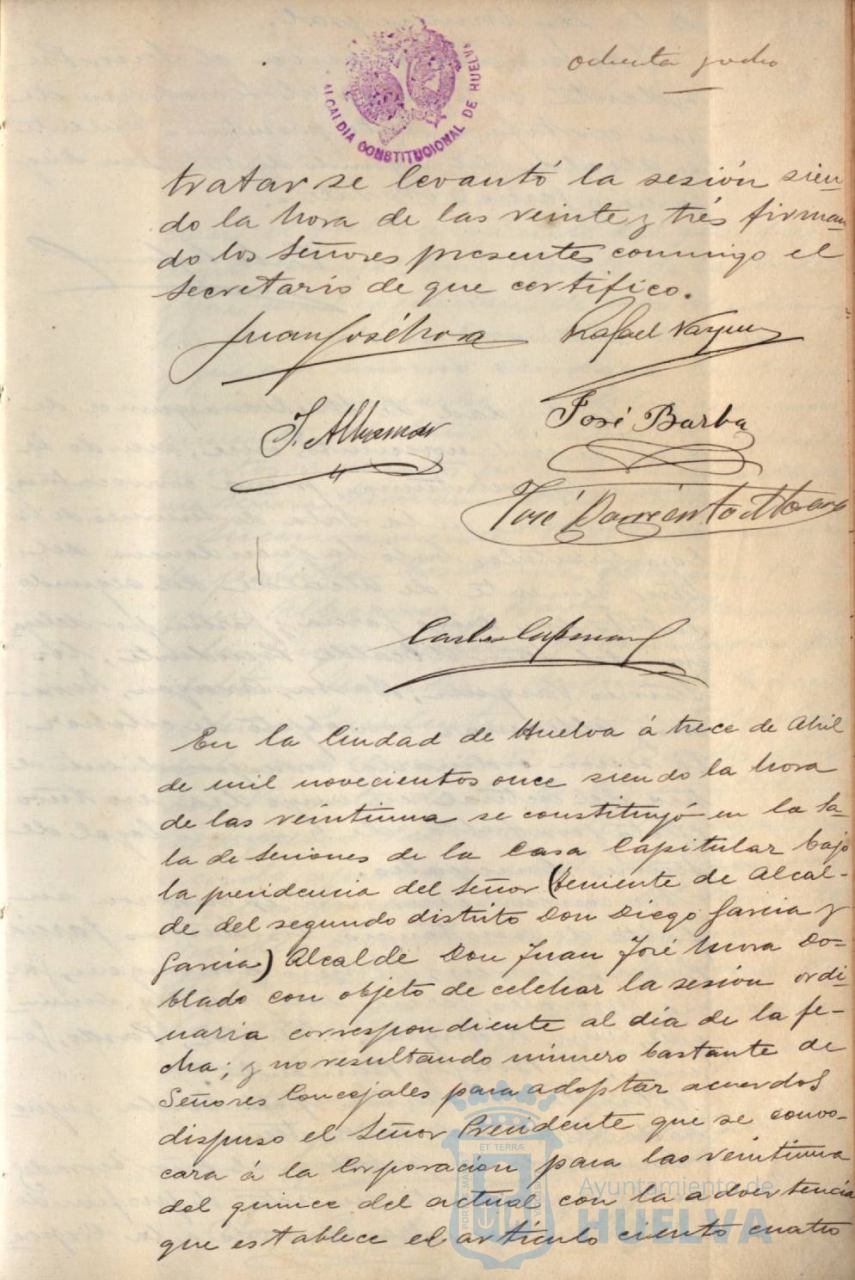 ALCALDIA CONSTITUCIONAL DE HUELVA
ochenta y ocho
tratar se levantó la sesión sien-
do la hora de las veinte y trés firman-
do los Señores presentes conmigo el
Secretario de que certifico.
Juan José Mora Rafael Vazquez
J. Alhemar
José Barba
José
En la Ciudad de Huelva á trece de Abril
de mil novecientos once siendo la hora
de las veintiuna se constituyó en la Sa-
la de Sesiones de la Casa Capitular bajo
la presidencia del Señor (Teniente de Alcal-
de del segundo distrito Don Diego Garcia y
Garcia) Alcalde Don Juan José Mora Do-
blado con objeto de celebrar la sesión ordi-
naria correspondiente al día de la fe-
cha; y no resultando número bastante de
Señores Concejales para adoptar acuerdos
dispuso el Señor Presidente que se convo-
cara á la Corporación para las veintiuna
del quince del actual con la advertencia
que establece el artículo ciento cuatro
Ayuntamiento de
HUELVA